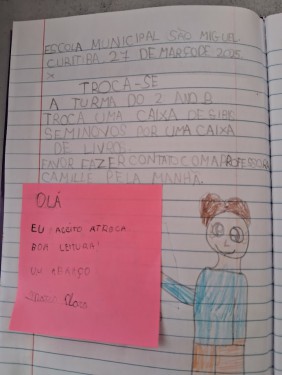 ESCOLA MUNICIPAL SÃO MIGUEL
CURITIBA, 27 DE MARÇO DE 2025.
X
TROCA-SE
A TURMA DO 2 ANO B
TROCA UMA CAIXA DE GIBIS
SEMINOVOS POR UMA CAIXA
DE LIVRO.
FAVOR FAZER CONTATO COM A PROFESSORA
CAMILLE PELA MANHÃ.
OLÁ
EU ACEITO A TROCA
BOA LEITURA!
UM ABRAÇO